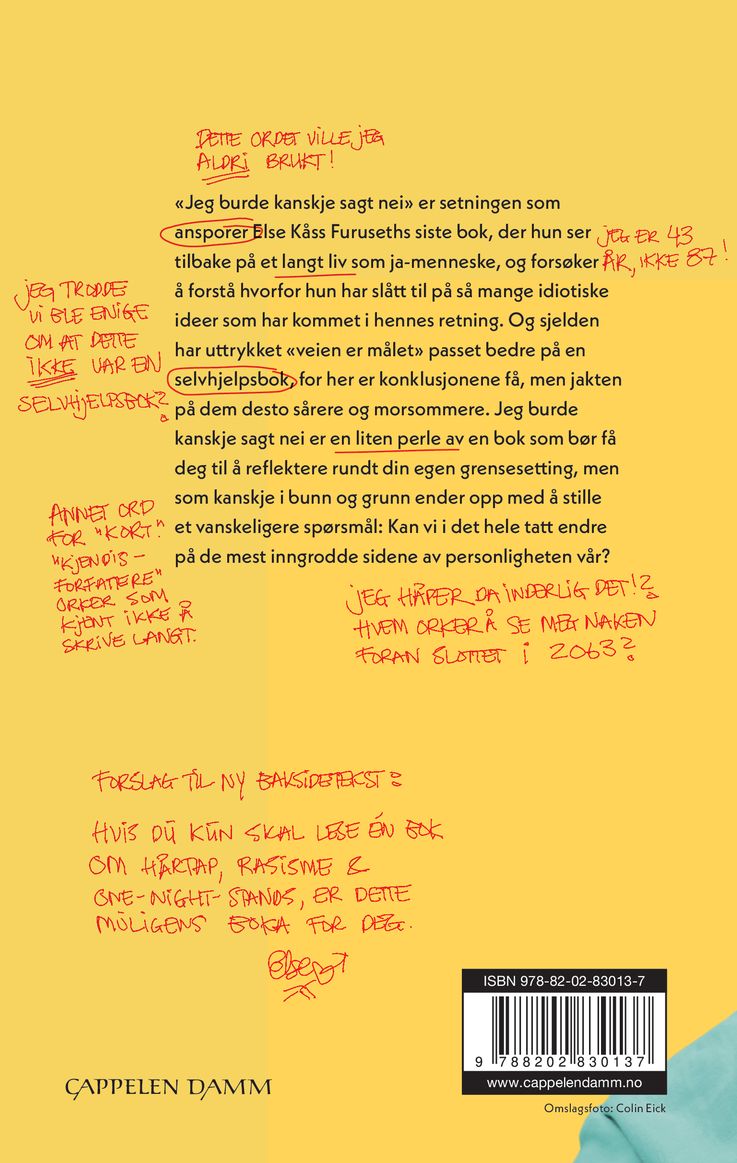 DETTE ORDET VILLE JEG
ALDRI BRUKT!
«Jeg burde kanskje sagt nei» er setningen som
ansporer Else Kåss Furuseths siste bok, der hun ser
tilbake på et langt liv som ja-menneske, og forsøker
å forstå hvorfor hun har slått til på så mange idiotiske
ideer som har kommet i hennes retning. Og sjelden
har uttrykket «veien er målet» passet bedre på en
selvhjelpsbok, for her er konklusjonene få, men jakten
på dem desto sårere og morsommere. Jeg burde
kanskje sagt nei er en liten perle av en bok som bør få
deg til å reflektere rundt din egen grensesetting, men
som kanskje i bunn og grunn ender opp med å stille
et vanskeligere spørsmål: Kan vi i det hele tatt endre
på de mest inngrodde sidene av personligheten vår?
JEG ER 43
ÅR, IKKE 87!
JEG TRODDE
VI BLE ENIGE
OM AT DETTE
IKKE VAR EN
SELVHJELPSBOK?
ANNET ORD
FOR "KORT".
"KJENDIS-
FORFATTERE"
ORKER SOM
KJENT IKKE Å
SKRIVE LANGT.
JEG HÅPER DA INDERLIG DET!?
HVEM ORKER Å SE MEG NAKEN
FORAN SLOTTET I 2063?
FORSLAG TIL NY BAKSIDETEKST:
HVIS DU KUN SKAL LESE ÉN BOK
OM HÅRTAP, RASISME &
ONE-NIGHT-STANDS, ER DETTE
MULIGENS BOKA FOR DEG.
ISBN 978-82-02-83013-7
9 788202 830137
www.cappelendamm.no
CAPPELEN DAMM
Omslagsfoto: Colin Eick